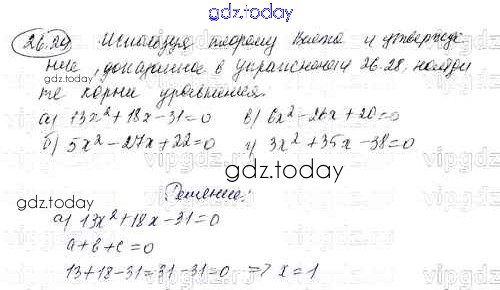 gdz.today
26.29 Используя теорему Виета и утвержде
ние, доказанное в упражнении 26.28, найди
те корни уравнения.
а) 13x² + 18x - 31 = 0 в) 6x² - 26x + 20 = 0
б) 5x² - 27x + 22 = 0 г) 3x² + 35x - 38 = 0
gdz.today
gdz.today
Решение:
а) 13x² + 18x - 31 = 0
a + b + c = 0
13 + 18 - 31 = 31 - 31 = 0 => x = 1